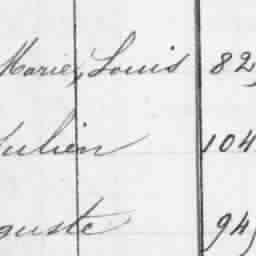 Marie, Louis 82
Julien 104
guste 94